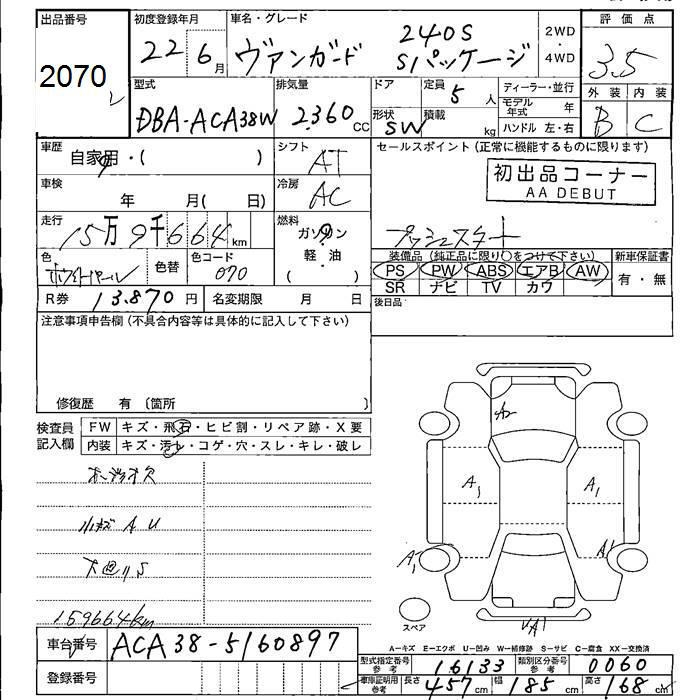 出品番号
2070
初度登録年月
22 6月
車名・グレード
ヴァンガード 240S Sパッケージ
2WD・4WD
評価点
3.5
外装 内装
B C
型式
DBA-ACA38W
排気量
2.360 CC
ドア
形状
SW
定員
5 人
積載
kg
ディーラー・並行
モデル年式 年
ハンドル 左・右
車歴
自家用・( )
シフト
AT
セールスポイント(正常に機能するものに限ります)
初出品コーナー
AA DEBUT
プッシュスタート
車検
年 月( 日)
冷房
AC
走行
15万9千664km
燃料
ガソリン
軽・油
( )
色
ホワイトパール
色替
色コード
070
装備品(純正品に限り○をつけて下さい)
PS PW ABS エアB AW
SR ナビ TV カワ
新車保証書
有・無
R券 13.870円
名変期限 月 日
後日品
注意事項申告欄(不具合内容等は具体的に記入して下さい)
修復歴 有〔箇所 〕
検査員記入欄
FW キズ・飛石・ヒビ割・リペア跡・X要
内装 キズ・汚レ・コゲ・穴・スレ・キレ・破レ
小キズ A U
159664km
A2
A1
A1
A1
A1
スペア
A-キズ E-エクボ U-凹み W-補修跡 S-サビ C-腐食 XX-交換済
車台番号
ACA38-5160897
登録番号
型式指定番号 参考
16133
類別区分番号 参考
0060
車庫証明用 参考
長さ 457cm
幅 185cm
高さ 168cm